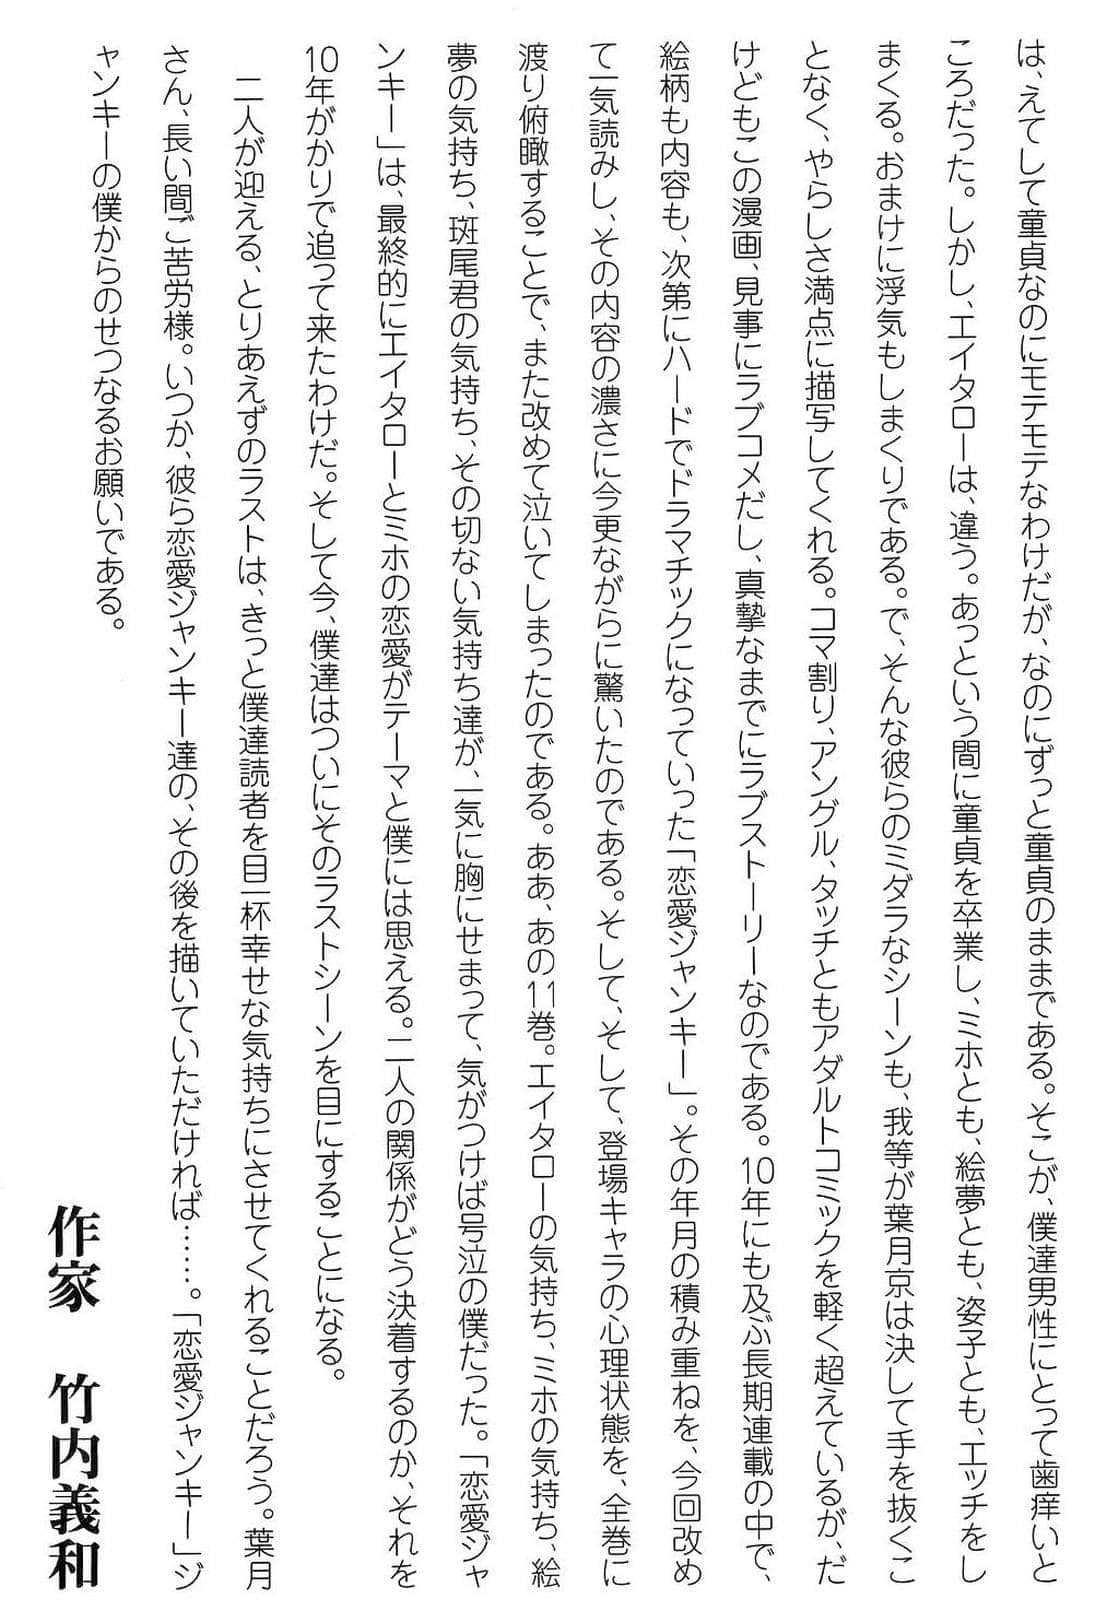 は、えてして童貞なのにモテモテなわけだが、なのにずっと童貞のままである。そこが、僕達男性にとって歯痒いと
ころだった。しかし、エイタローは、違う。あっという間に童貞を卒業し、ミホとも、絵夢とも、姿子とも、エッチをし
まくる。おまけに浮気もしまくりである。で、そんな彼らのミダラなシーンも、我等が葉月京は決して手を抜くこ
となく、やらしさ満点に描写してくれる。コマ割り、アングル、タッチともアダルトコミックを軽く超えているが、だ
けどもこの漫画、見事にラブコメだし、真摯なまでにラブストーリーなのである。10年にも及ぶ長期連載の中で、
絵柄も内容も、次第にハードでドラマチックになっていった「恋愛ジャンキー」。その年月の積み重ねを、今回改め
て一気読みし、その内容の濃さに今更ながらに驚いたのである。そして、そして、登場キャラの心理状態を、全巻に
渡り俯瞰することで、また改めて泣いてしまったのである。ああ、あの11巻。エイタローの気持ち、ミホの気持ち、絵
夢の気持ち、斑尾君の気持ち、その切ない気持ち達が、一気に胸にせまって、気がつけば号泣の僕だった。「恋愛ジャ
ンキー」は、最終的にエイタローとミホの恋愛がテーマと僕には思える。二人の関係がどう決着するのか、それを
10年がかりで追って来たわけだ。そして今、僕達はついにそのラストシーンを目にすることになる。
二人が迎える、とりあえずのラストは、きっと僕達読者を目一杯幸せな気持ちにさせてくれることだろう。葉月
さん、長い間ご苦労様。いつか、彼ら恋愛ジャンキー達の、その後を描いていただければ……。「恋愛ジャンキー」ジ
ャンキーの僕からのせつなるお願いである。
作家　竹内義和